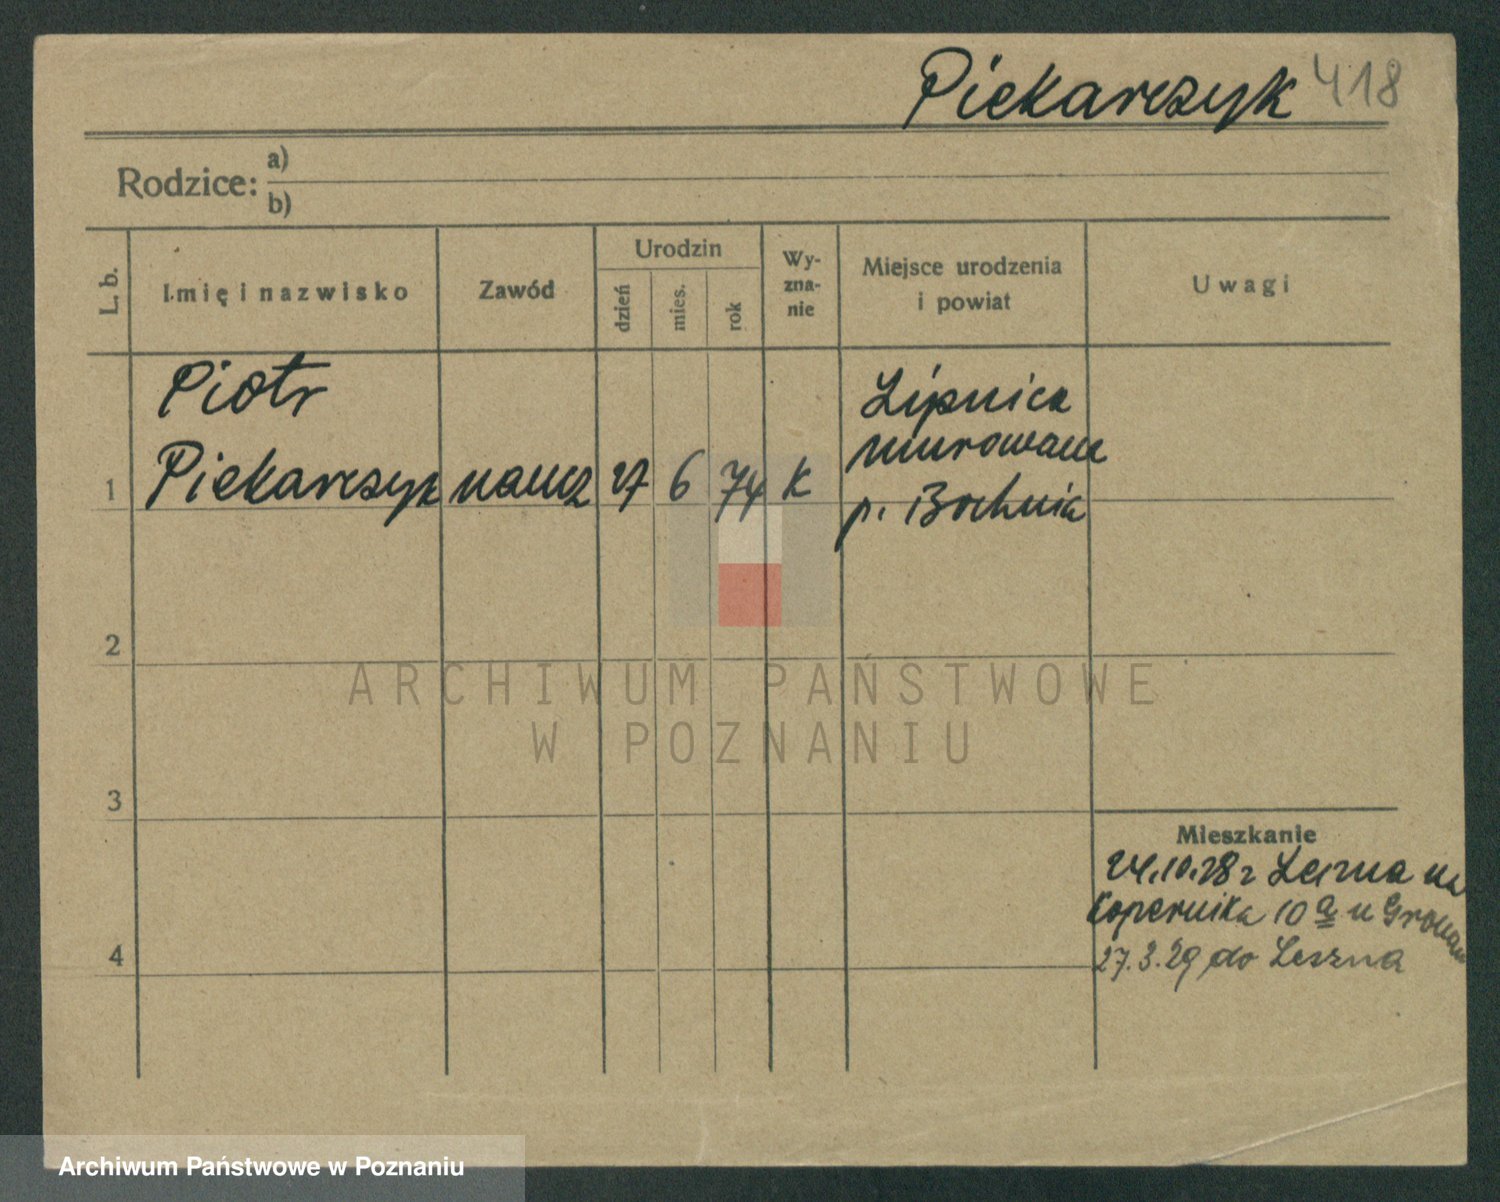 Piekarczyk 418
Rodzice: a)
b)
L. b.
Imię i nazwisko
Zawód
Urodzin
dzień
mies.
rok
Wy-
zna-
nie
Miejsce urodzenia
i powiat
Uwagi
1
Piotr
Piekarczyk
naucz
27
6
74
K
Lipnica
murowana
p. Bochnia
2
3
4
Mieszkanie
24.10.28 z Leszna na
Kopernika 10 u
27.3.29 do Leszna
ARCHIWUM PAŃSTWOWE
W POZNANIU
Archiwum Państwowe w Poznaniu